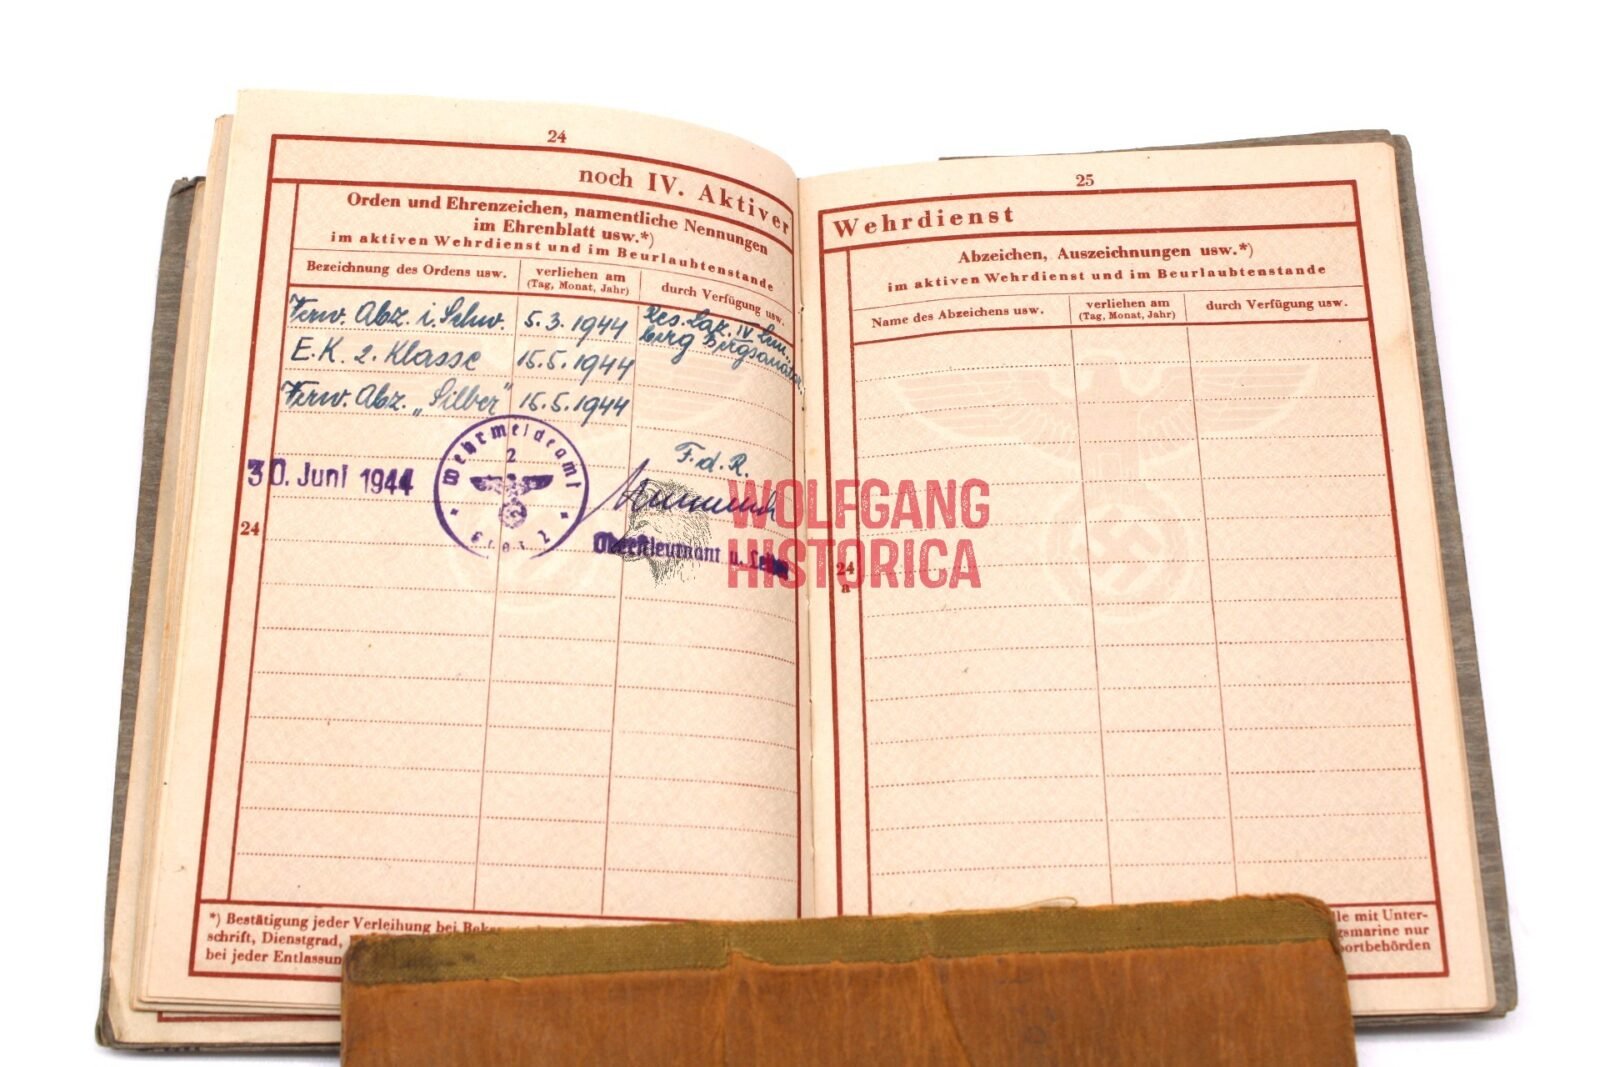 24
noch IV. Aktiver
Orden und Ehrenzeichen, namentliche Nennungen
im Ehrenblatt usw.*)
im aktiven Wehrdienst und im Beurlaubtenstande
Bezeichnung des Ordens usw.
verliehen am
(Tag, Monat, Jahr)
durch Verfügung usw.
Verw. Abz. i. Schw. 5.3.1944 Res. Laz. IV Lem-
berg
E.K. 2. Klasse 15.5.1944
Verw. Abz. „Silber" 15.5.1944
Wehrmeldeamt
2
30. Juni 1944
F.d.R.
Oberstleutnant u.
24
*) Bestätigung jeder Verleihung bei
schrift, Dienstgrad,
bei jeder
25
Wehrdienst
Abzeichen, Auszeichnungen usw.*)
im aktiven Wehrdienst und im Beurlaubtenstande
Name des Abzeichens usw.
verliehen am
(Tag, Monat, Jahr)
durch Verfügung usw.
24
a
mit Unter-
nur
WOLFGANG
HISTORICA